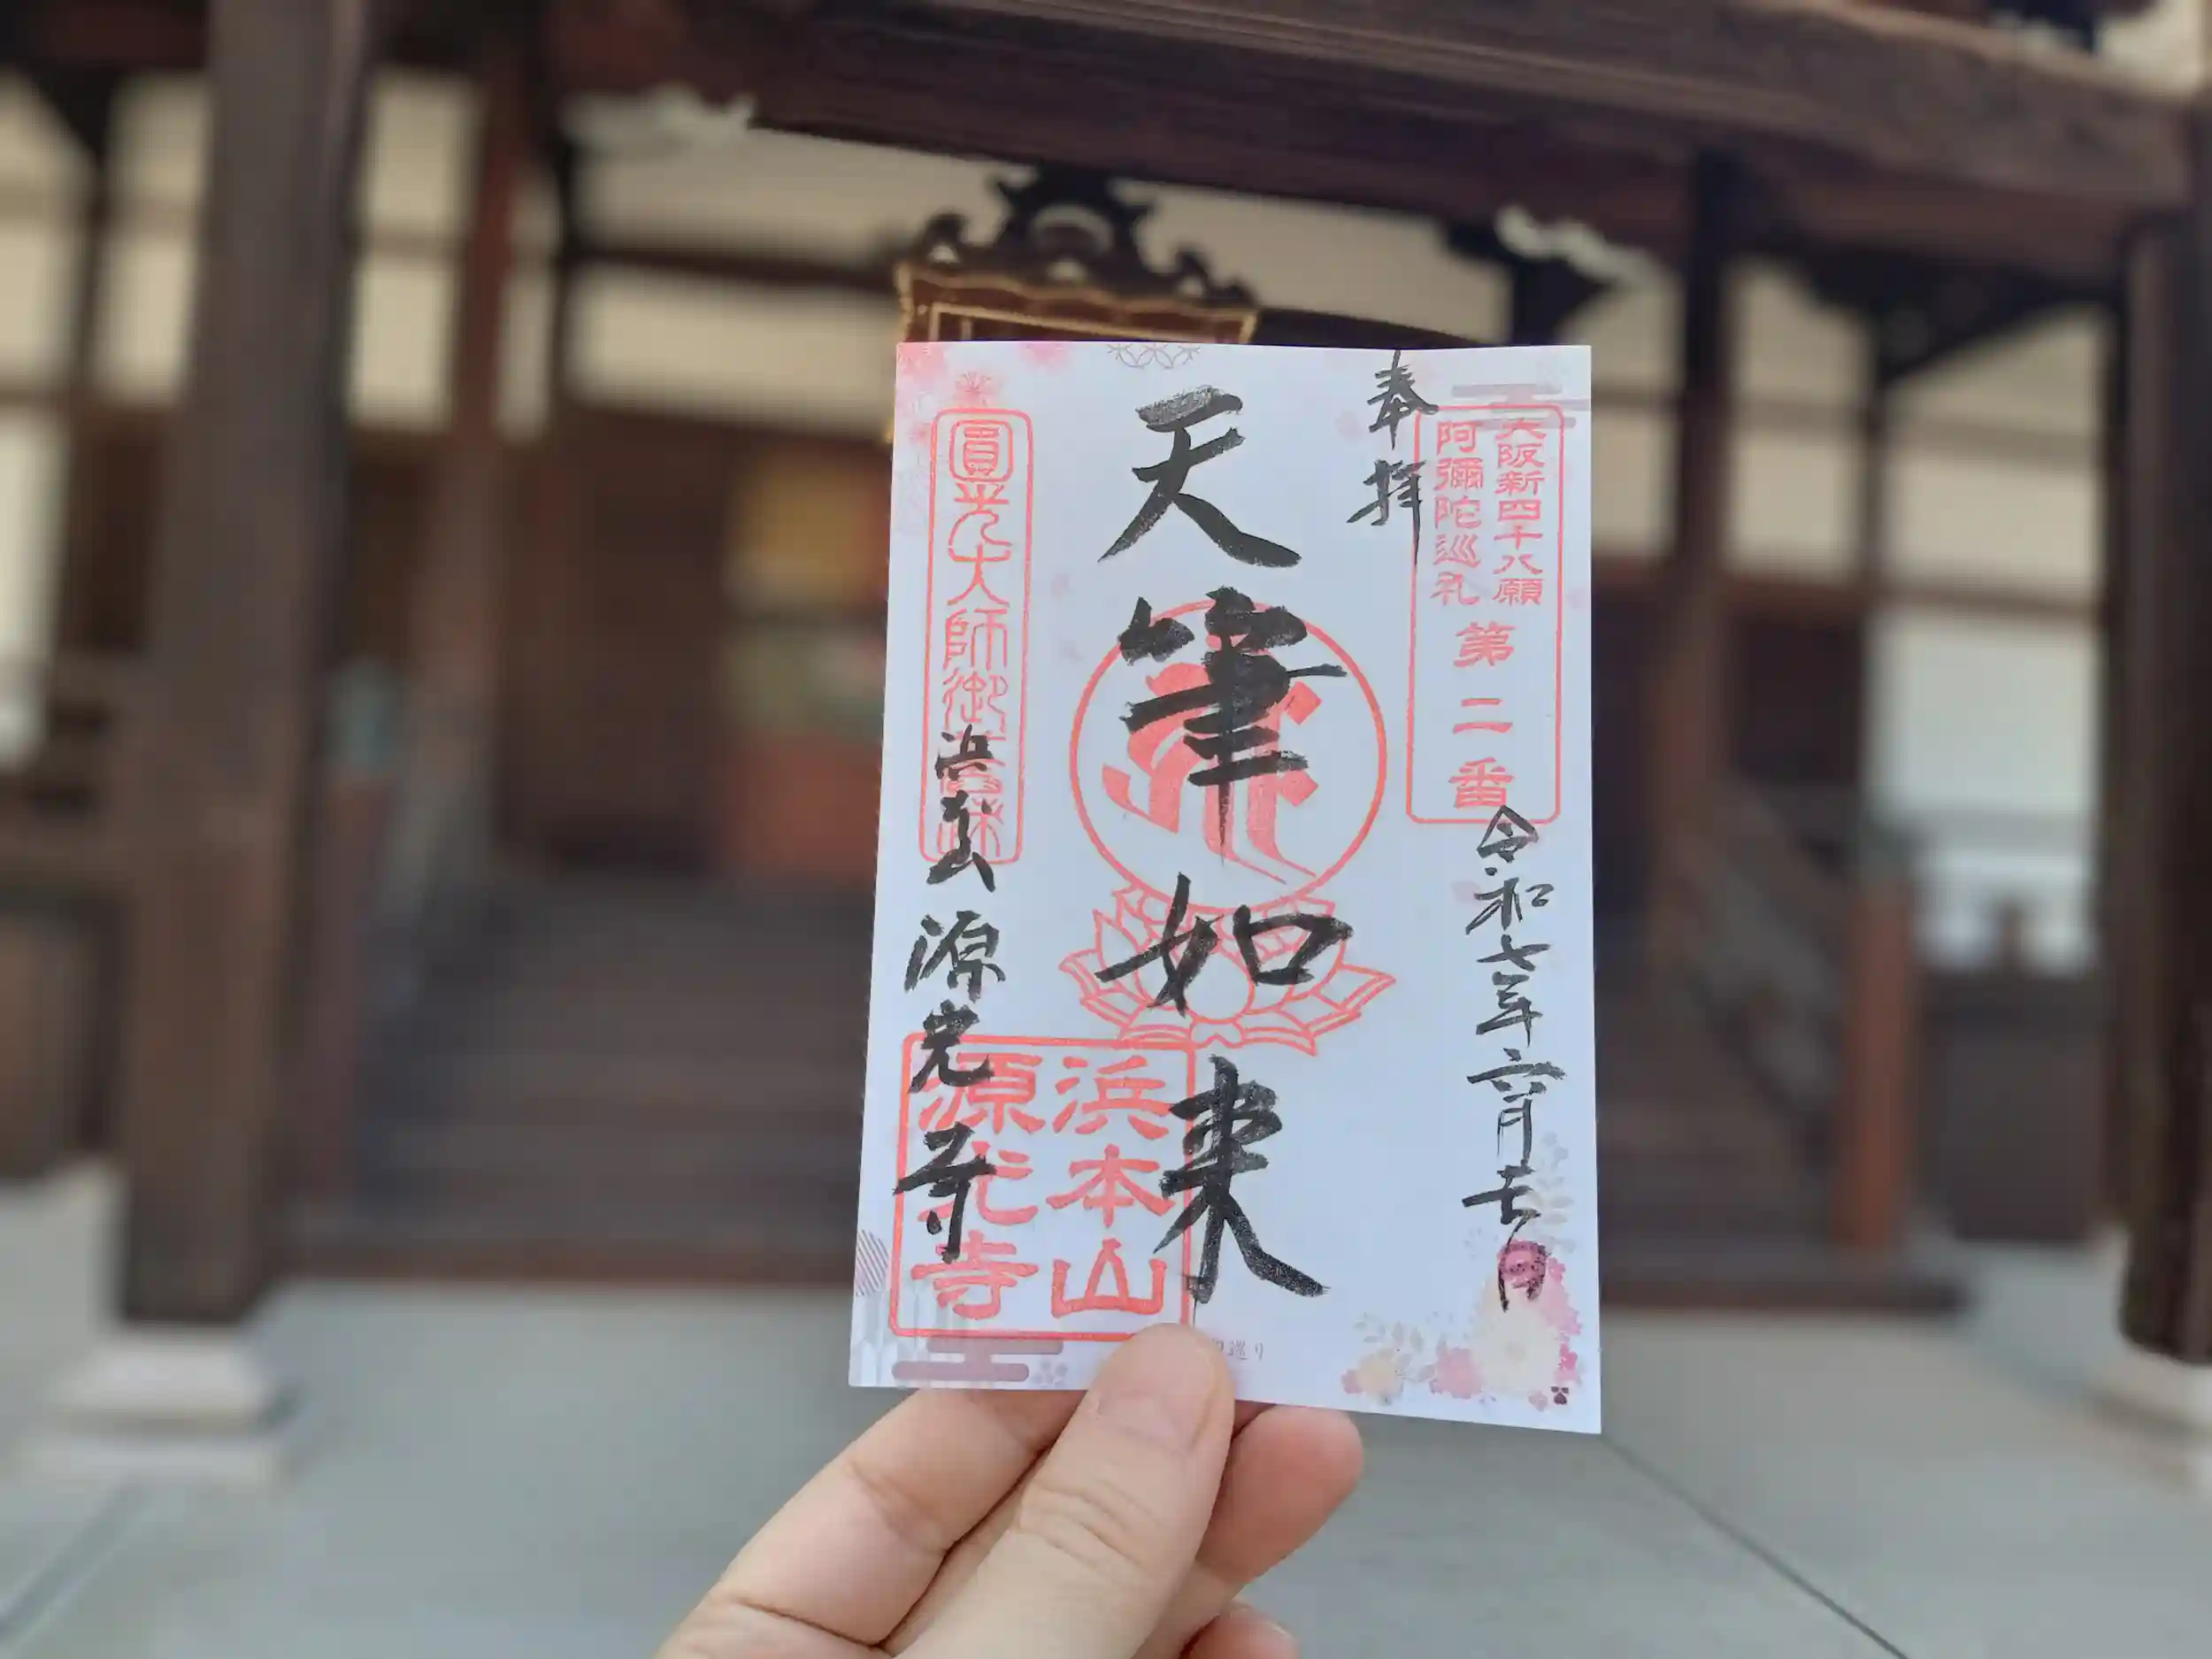 奉拝
大阪新四十八願
阿彌陀巡礼
第二番
令和七年六月吉日
天筆如来
圓光大師御
浜本山
源光寺
源光寺
巡り